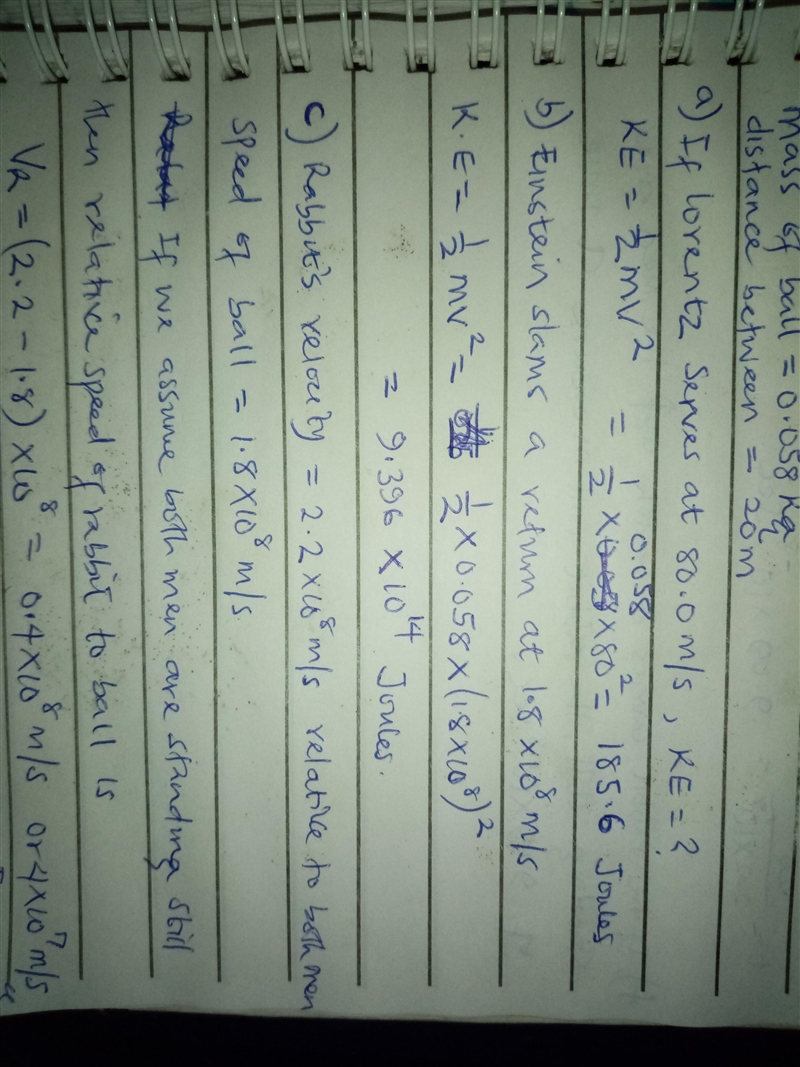 Mass of ball = 0.058 Kg
distance between = 20m
a) If Lorentz serves at 80.0 m/s, KE = ?
KE = 1/2 mv² = 1/2 × 0.058 × 80² = 185.6 Joules
b) Einstein slams a return at 1.8 × 10⁸ m/s
K.E = 1/2 mv² = 1/2 × 0.058 × (1.8 × 10⁸)²
= 9.396 × 10¹⁴ Joules.
c) Rabbit's velocity = 2.2 × 10⁸ m/s relative to both men
Speed of ball = 1.8 × 10⁸ m/s
If we assume both men are standing still
then relative speed of rabbit to ball is
VR = (2.2 - 1.8) × 10⁸ = 0.4 × 10⁸ m/s or 4 × 10⁷ m/s